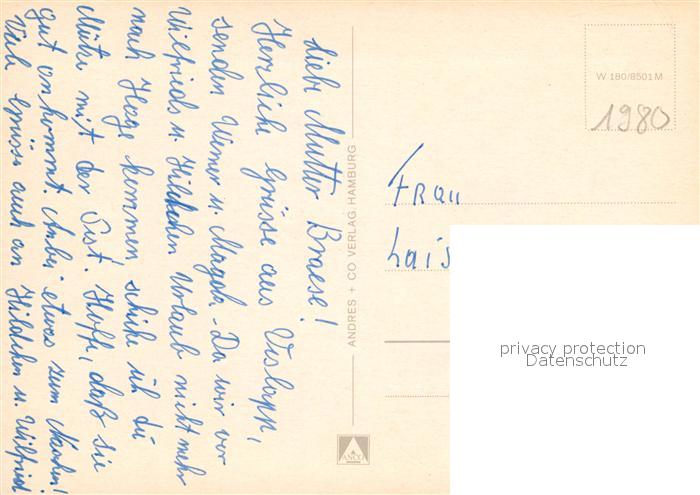 Liebe Mutter Braese!
Herzliche Grüsse aus Vislapp,
senden Werner u. Magda - Da wir vor
Wilfrieds u. Hildchen Urlaub nicht mehr
nach Hage kommen, schicke ich die
Mütze mit der Post. Hoffe, daß sie
gut ankommt. Anbei etwas zum Naschen!
Viele Grüsse auch an Hildchen u. Wilfried
ANDRES + CO VERLAG HAMBURG
ANCO
W 180/8501M
1980
Frau
Luis
privacy protection
Datenschutz